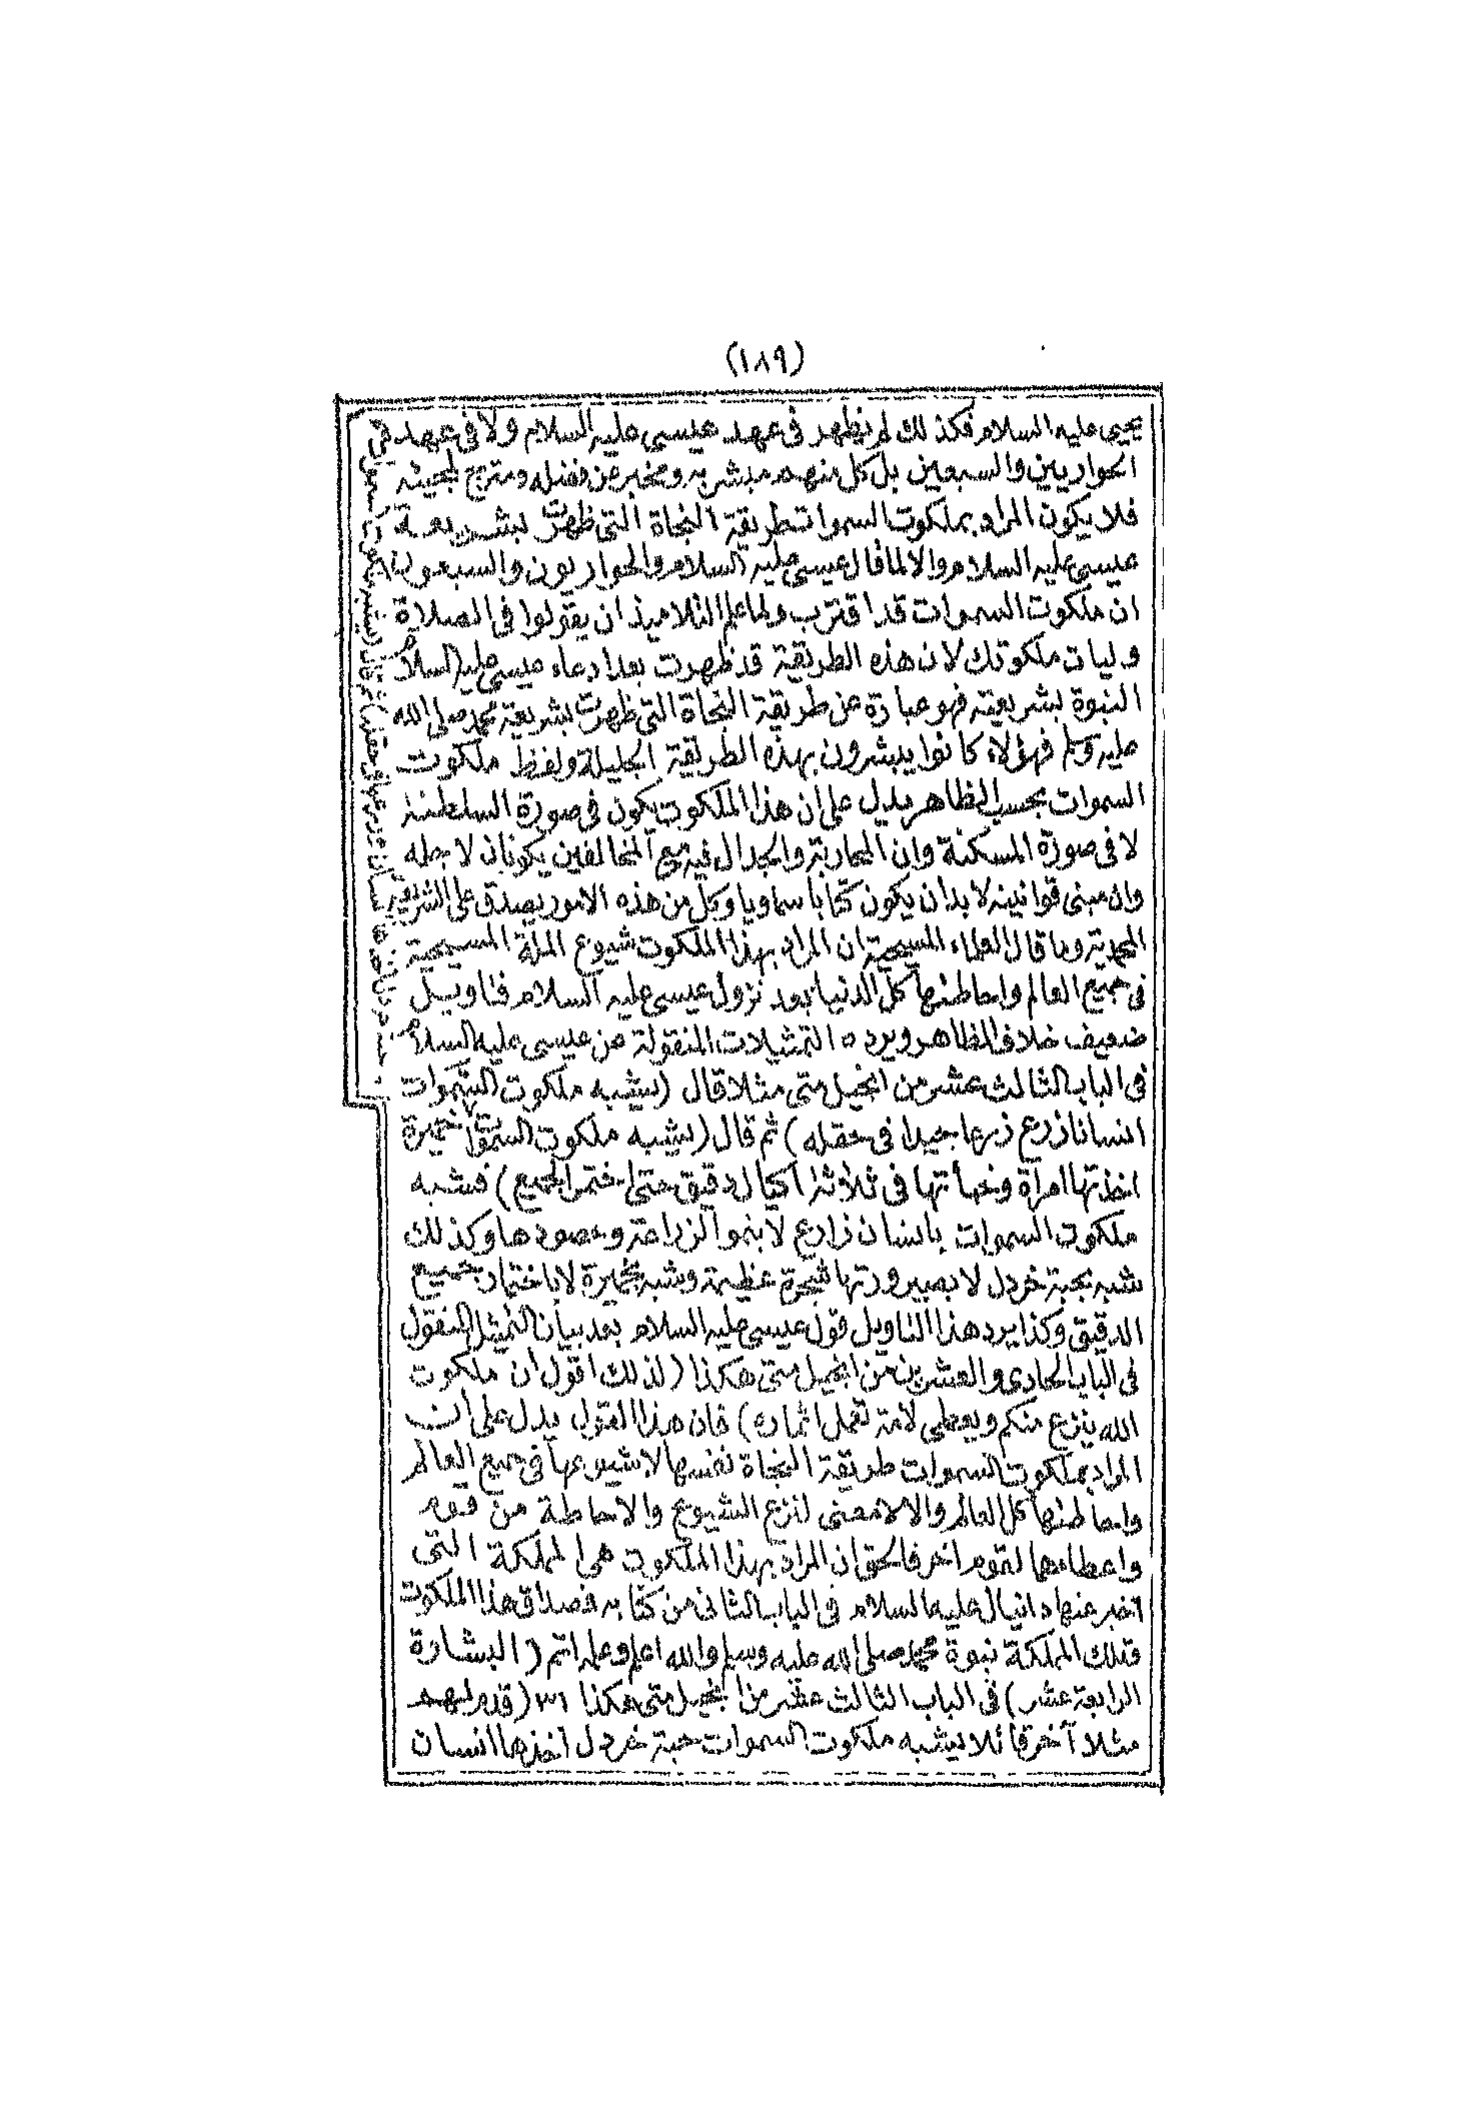 (١٨٩)
يحيى عليه السلام فكذلك لم يظهر في عهد عيسى عليه السلام ولا في عهد
الحواريين والسبعين بل كل منهم مبشر به ومخبر عن فضله ومترج لمجيئه
فلا يكون المراد بملكوت السموات طريقة النجاة التى ظهرت بشريعة
عيسى عليه السلام والا لما قال عيسى عليه السلام والحواريون والسبعون
ان ملكوت السموات قد اقترب ولما علم التلاميذ ان يقولوا فى الصلاة
وليات ملكوتك لان هذه الطريقة قد ظهرت بعد ادعاء عيسى عليه السلام
النبوة بشريعته فهو عبارة عن طريقة النجاة التى ظهرت بشريعة محمد صلى الله
عليه وسلم فهؤلاء كانوا يبشرون بهذه الطريقة الجليلة ولفظ ملكوت
السموات بحسب الظاهر يدل على ان هذا الملكوت يكون فى صورة السلطنة
لا فى صورة المسكنة وان المحاربة والجدال فيه مع المخالفين يكونان لاجله
وان مبنى قوانينه لا بد ان يكون كتابا سماويا وكل من هذه الامور يصدق على الشريعة
المحمدية وما قال العلماء المسيحية ان المراد بهذا الملكوت شيوع الملة المسيحية
فى جميع العالم واحاطتها كل الدنيا بعد نزول عيسى عليه السلام فتاويل
ضعيف خلاف الظاهر ويرده التمثيلات المنقولة عن عيسى عليه السلام
فى الباب الثالث عشر من انجيل متى مثلا قال (يشبه ملكوت السموات
انسانا زرع زرعا جيدا فى حقله) ثم قال (يشبه ملكوت السموات خميرة
اخذتها امرأة وخبأتها فى ثلاثة اكيال دقيق حتى اختمر الجميع) فشبه
ملكوت السموات بانسان زارع لا بنمو الزراعة وحصودها وكذلك
شبه بحبة خردل لا بصيرورتها شجرة عظيمة وشبه بخميرة لا باختمار جميع
الدقيق وكذا يرد هذا التاويل قول عيسى عليه السلام بعد بيان التمثيل المنقول
فى الباب الحادى والعشرين من انجيل متى هكذا (لذلك اقول ان ملكوت
الله ينزع منكم ويعطى لامة تعمل اثماره) فان هذا القول يدل على ان
المراد بملكوت السموات طريقة النجاة نفسها لا شيوعها فى جميع العالم
واحاطتها كل العالم والا لا معنى لنزع الشيوع والاحاطة من قوم
واعطاءها لقوم اخر فالحق ان المراد بهذا الملكوت هى المملكة التى
اخبر عنها دانيال عليه السلام فى الباب الثانى من كتابه فمصداق هذا الملكوت
وتلك المملكة نبوة محمد صلى الله عليه وسلم والله اعلم وعلمه اتم (البشارة
الرابعة عشر) فى الباب الثالث عشر من انجيل متى هكذا ٣١ (قدم لهم
مثلا آخر قائلا يشبه ملكوت السموات حبة خردل اخذها انسان